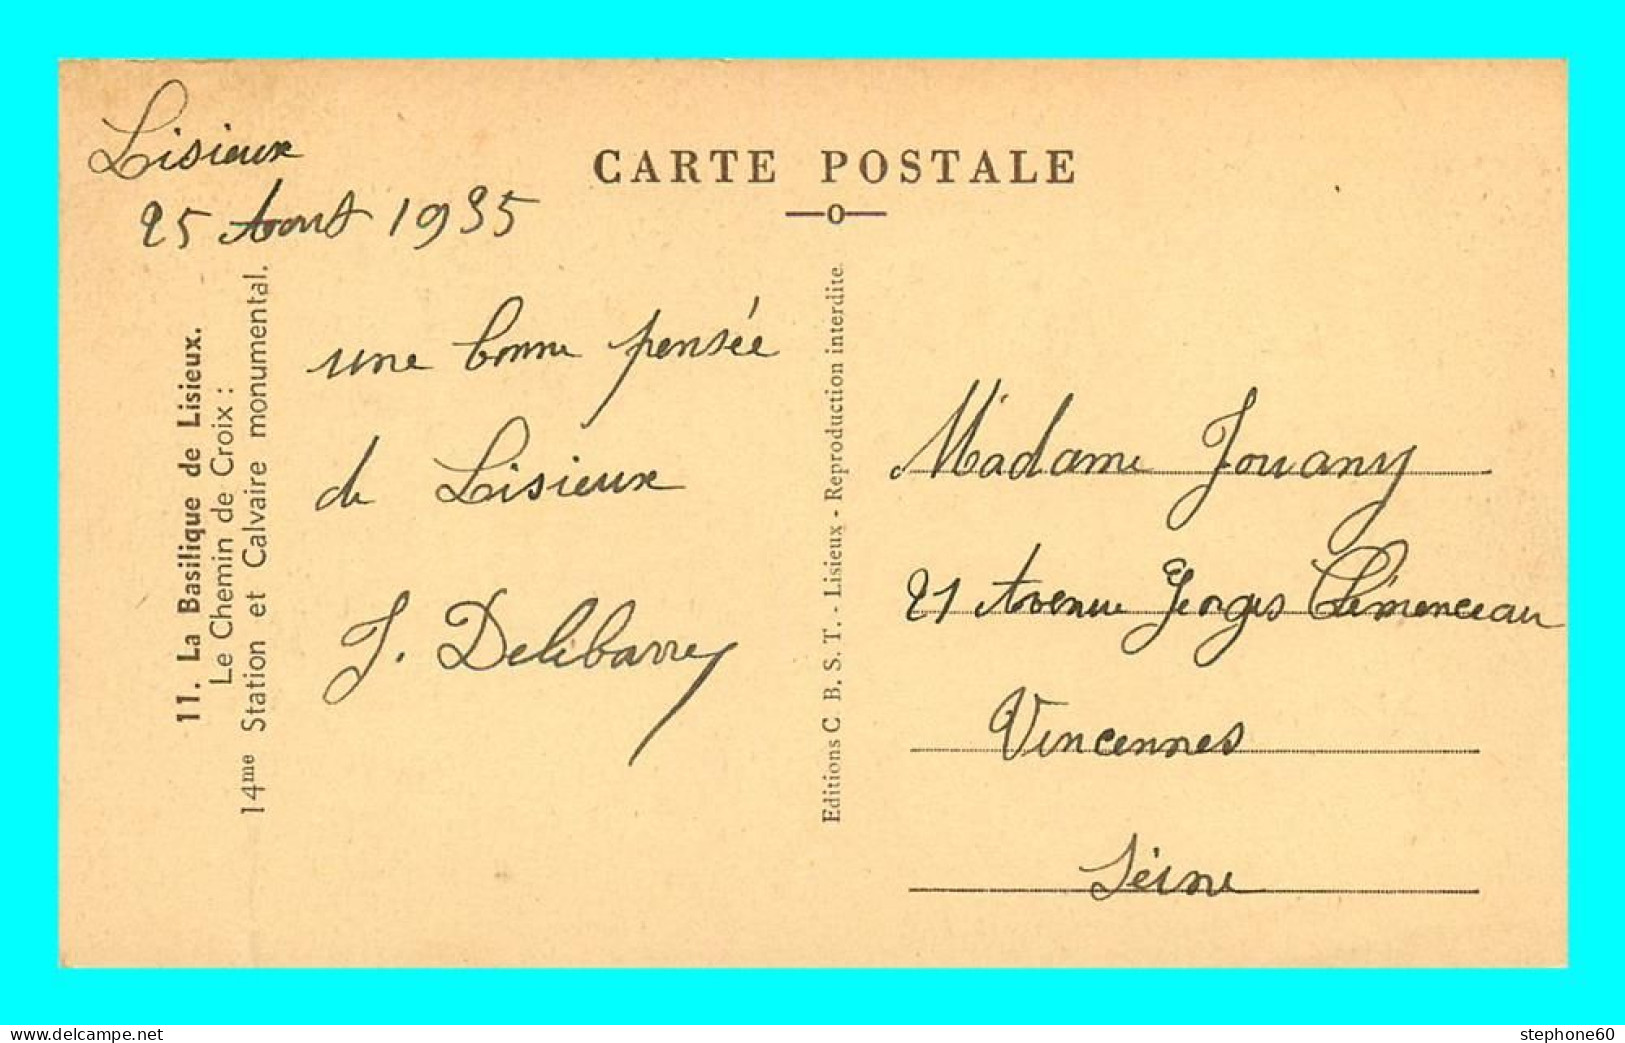 Lisieux
25 Août 1935
CARTE POSTALE
11. La Basilique de Lisieux.
Le Chemin de Croix :
14me Station et Calvaire monumental.
une bonne pensée
de Lisieux
J. Delibarrey
Editions C B. S. T. - Lisieux - Reproduction interdite.
Madame Jouany
21 Avenue Georges Clémenceau
Vincennes
Seine
www.delcampe.net
stephone60